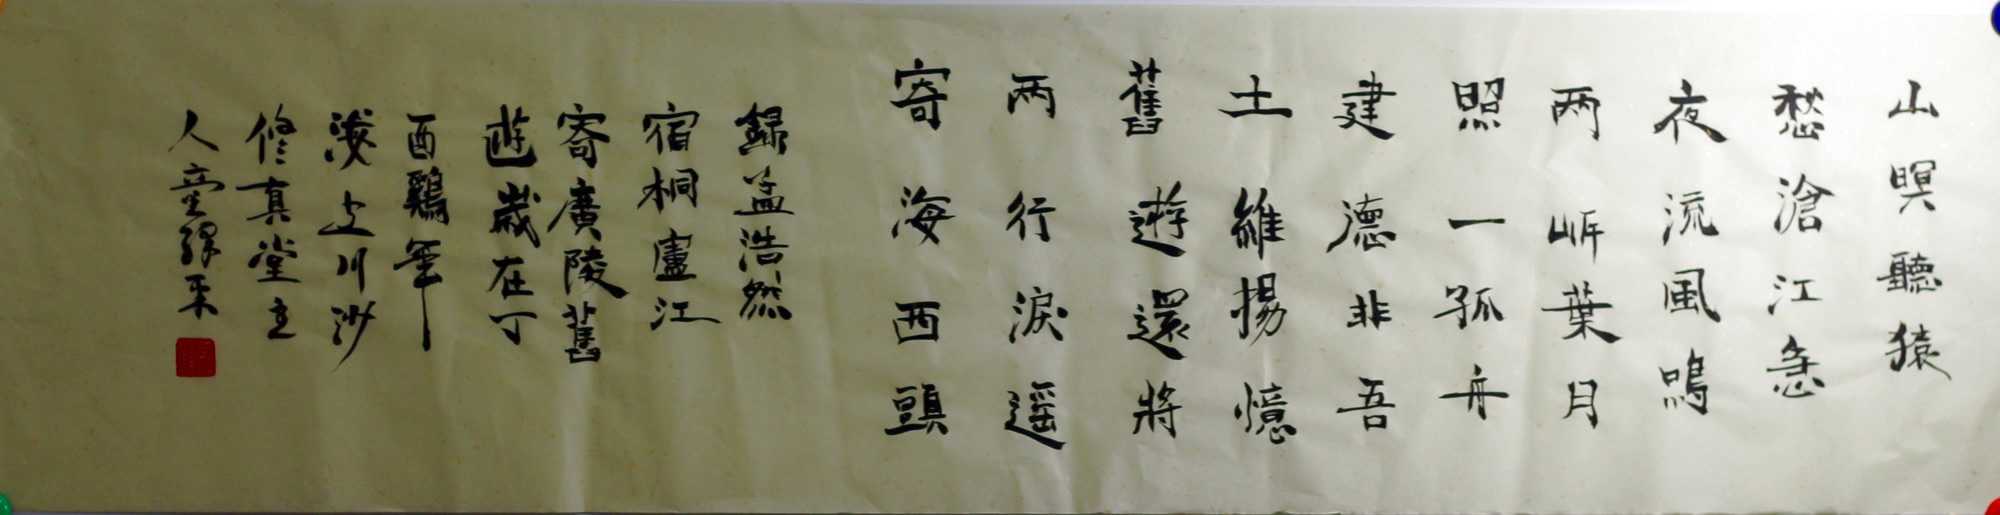 山暝聽猿
愁滄江急
夜流風鳴
兩岍葉月
照一孤舟
建德非吾
土維揚憶
舊遊還將
兩行淚遥
寄海西頭
録孟浩然
宿桐廬江
寄廣陵舊
遊歲在丁
酉鷄年
海上川沙
修真堂主
人